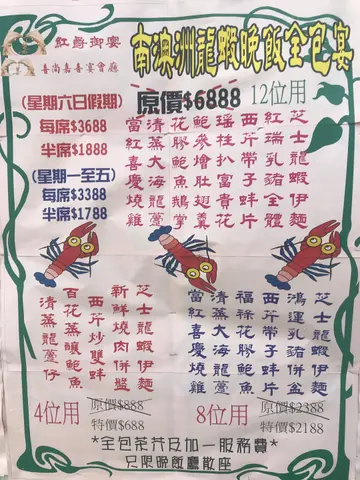 紅爵御宴
喜尚嘉喜宴會廳
南澳洲龍蝦晚飯全包宴
原價$6888 12位用
(星期六日假期)
每席$3688
半席$1888
(星期一至五)
每席$3388
半席$1788
芝士龍蝦伊麵
紅瑞乳豬全體
西芹帶子蚌片
瑤柱扒富貴花
鮑參燴肚翅羹
花膠鮑魚鵝掌
清蒸大海龍躉
當紅喜慶燒雞
芝士龍蝦伊麵
新鮮燒肉併盤
西芹炒雙蚌
百花蒸釀鮑魚
清蒸龍躉仔
4位用
原價$888
特價$688
芝士龍蝦伊麵
鴻運乳豬併盆
西芹帶子蚌片
福祿花膠鮑魚
清蒸大海龍躉
當紅喜慶燒雞
8位用
原價$2388
特價$2188
*全包茶芥及加一服務費*
只限晚飯廳散座